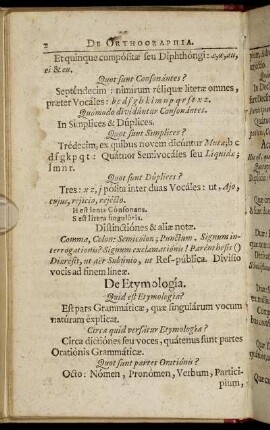 2 DE ORTHOGRAPHIA.
Et quinque compósitæ seu Diphthóngi: æ, œ, au,
ei & eu.
Quot sunt Consonántes?
Septéndecim: nimirum réliquæ literæ omnes,
præter Vocáles: b c d f g h k l m n p q r s t x z.
Quómodo dividúntur Consonántes.
In Símplices & Dúplices.
Quot sunt Simplices?
Trédecim, ex quibus novem dicúntur Mutæ, b c
d f g k p q t: Quátuor Semivocáles seu Liquidæ;
l m n r.
Quot sunt Dúplices?
Tres: x z, j posita inter duas Vocáles: ut, Ajo,
cujus, rejicio, rejéćto.
H est lenis Cónsonans.
S est litera singuláris.
Distinctiónes & aliæ notæ.
Comma, Colon; Semicolon; Punctum, Signum in-
terrogationis? Signum exclamatiónis! Parénthesis ()
Diærésit, ut aër Subúnio, ut Res-pública. Divísio
vocis ad finem lineæ.
De Etymología.
Quid est Etymología?
Est pars Grammáticæ, quæ singulárum vocum
natúram éxplicat.
Circa quid versátur Etymología?
Circa dictiónes seu voces, quátenus sunt partes
Oratiónis Grammáticæ.
Quot sunt partes Oratiónis?
Octo: Nomen, Pronómen, Verbum, Partici-
pium,